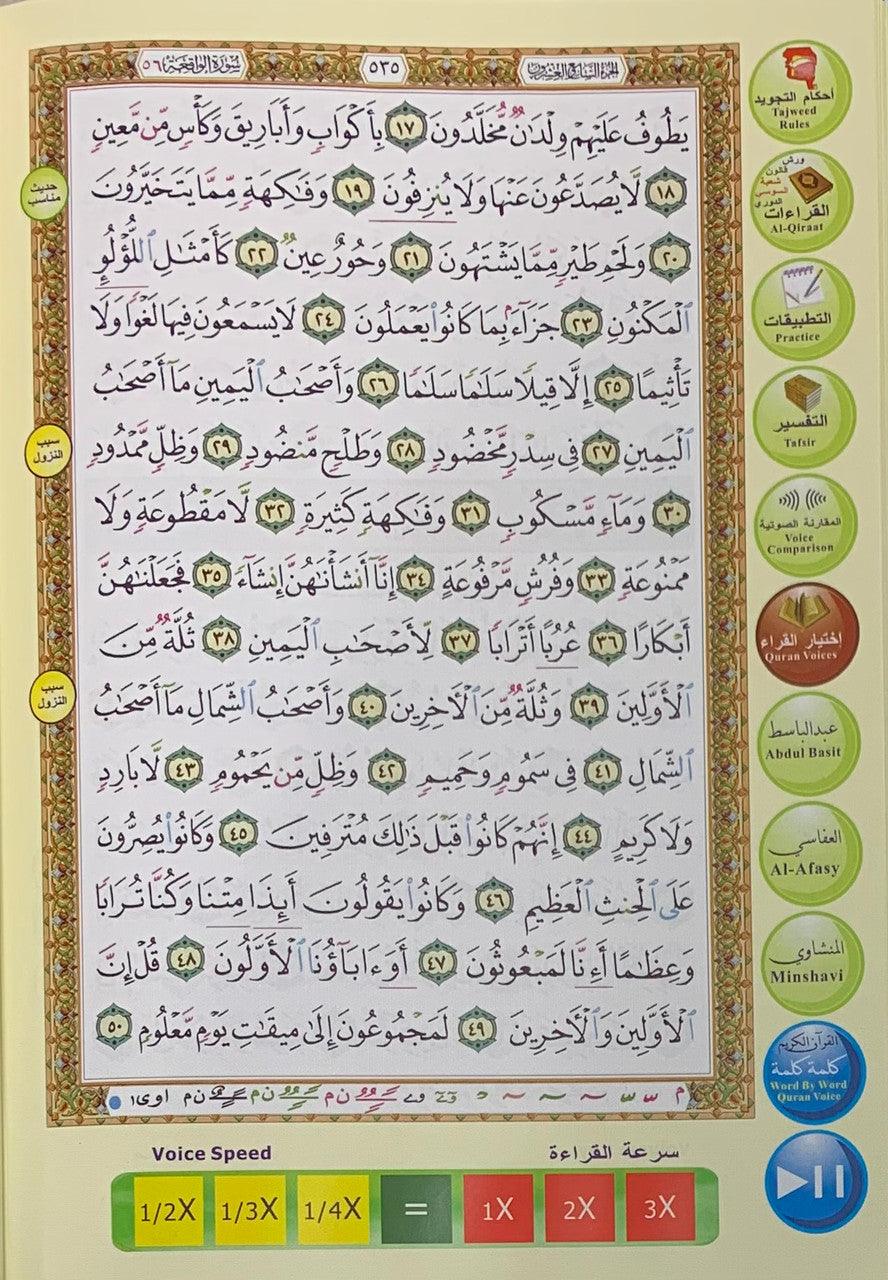 سُورَةُ الوَاقِعَةِ ٥٦
٥٣٥
الجزء السابع والعشرون
يَطُوفُ عَلَيْهِمْ وِلْدَٰنٌ مُّخَلَّدُونَ ١٧ بِأَكْوَابٍ وَأَبَارِيقَ وَكَأْسٍ مِّن مَّعِينٍ
١٨ لَّا يُصَدَّعُونَ عَنْهَا وَلَا يُنزِفُونَ ١٩ وَفَٰكِهَةٍ مِّمَّا يَتَخَيَّرُونَ
٢٠ وَلَحْمِ طَيْرٍ مِّمَّا يَشْتَهُونَ ٢١ وَحُورٌ عِينٌ ٢٢ كَأَمْثَٰلِ ٱللُّؤْلُؤِ
ٱلْمَكْنُونِ ٢٣ جَزَآءًۢ بِمَا كَانُوا۟ يَعْمَلُونَ ٢٤ لَا يَسْمَعُونَ فِيهَا لَغْوًا وَلَا
تَأْثِيمًا ٢٥ إِلَّا قِيلًا سَلَٰمًا سَلَٰمًا ٢٦ وَأَصْحَٰبُ ٱلْيَمِينِ مَآ أَصْحَٰبُ
ٱلْيَمِينِ ٢٧ فِى سِدْرٍ مَّخْضُودٍ ٢٨ وَطَلْحٍ مَّنضُودٍ ٢٩ وَظِلٍّ مَّمْدُودٍ
٣٠ وَمَآءٍ مَّسْكُوبٍ ٣١ وَفَٰكِهَةٍ كَثِيرَةٍ ٣٢ لَّا مَقْطُوعَةٍ وَلَا
مَمْنُوعَةٍ ٣٣ وَفُرُشٍ مَّرْفُوعَةٍ ٣٤ إِنَّآ أَنشَأْنَٰهُنَّ إِنشَآءً ٣٥ فَجَعَلْنَٰهُنَّ
أَبْكَارًا ٣٦ عُرُبًا أَتْرَابًا ٣٧ لِّأَصْحَٰبِ ٱلْيَمِينِ ٣٨ ثُلَّةٌ مِّنَ
ٱلْأَوَّلِينَ ٣٩ وَثُلَّةٌ مِّنَ ٱلْـَٔاخِرِينَ ٤٠ وَأَصْحَٰبُ ٱلشِّمَالِ مَآ أَصْحَٰبُ
ٱلشِّمَالِ ٤١ فِى سَمُومٍ وَحَمِيمٍ ٤٢ وَظِلٍّ مِّن يَحْمُومٍ ٤٣ لَّا بَارِدٍ
وَلَا كَرِيمٍ ٤٤ إِنَّهُمْ كَانُوا۟ قَبْلَ ذَٰلِكَ مُتْرَفِينَ ٤٥ وَكَانُوا۟ يُصِرُّونَ
عَلَى ٱلْحِنثِ ٱلْعَظِيمِ ٤٦ وَكَانُوا۟ يَقُولُونَ أَئِذَا مِتْنَا وَكُنَّا تُرَابًا
وَعِظَٰمًا أَءِنَّا لَمَبْعُوثُونَ ٤٧ أَوَءَابَآؤُنَا ٱلْأَوَّلُونَ ٤٨ قُلْ إِنَّ
ٱلْأَوَّلِينَ وَٱلْـَٔاخِرِينَ ٤٩ لَمَجْمُوعُونَ إِلَىٰ مِيقَٰتِ يَوْمٍ مَّعْلُومٍ ٥٠
حديث
مناسب
سبب
النزول
سبب
النزول
أحكام التجويد
Tajweed
Rules
ورش
قالون
شعبة
السوسي
الدوري
القراءات
Al-Qiraat
التطبيقات
Practice
التفسير
Tafsir
المقارنة الصوتية
Voice
Comparison
اختيار القراء
Quran Voices
عبدالباسط
Abdul Basit
العفاسي
Al-Afasy
المنشاوي
Minshavi
القرآن الكريم
كلمة كلمة
Word By Word
Quran Voice
Voice Speed
سرعة القراءة
1/2X 1/3X 1/4X = 1X 2X 3X